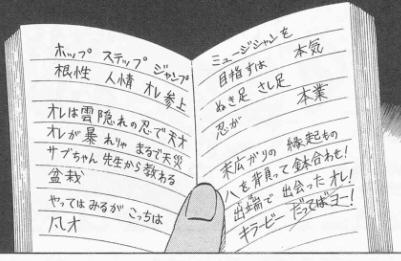 ホップ ステップ ジャンプ
根性 人情 オレ参上
オレは雲隠れの忍で天才
オレが暴れりゃ まるで天災
サブちゃん先生から教わる
盆栽
やってはみるが こっちは
凡才
ミュージシャンを
目指すは 本気
ぬき足 さし足
忍が 本業
末広がりの 縁起もの
八を背負って 鉢合わせ!
出端で 出会った オレ!
キラービー だってばヨー!